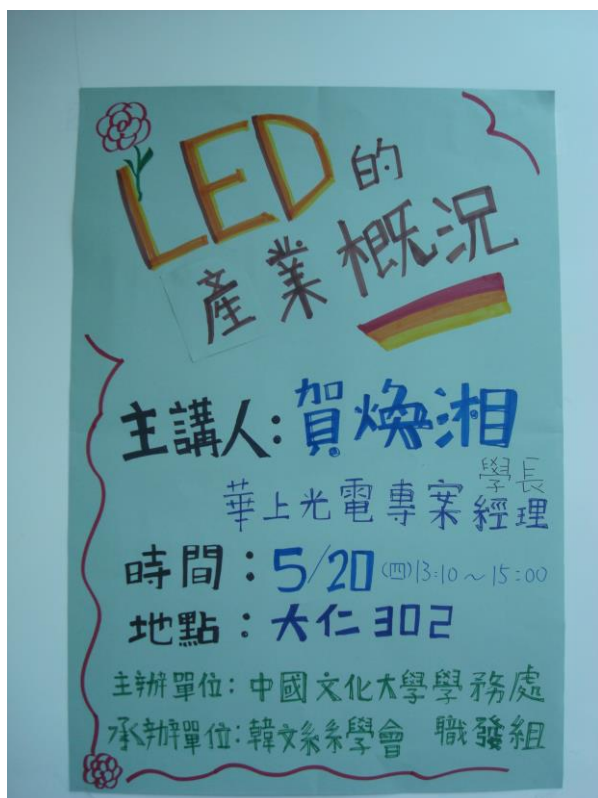 LED的
產業概況
主講人:賀煥湘
學長
華上光電專案經理
時間:5/20(四)13:10~15:00
地點:大仁302
主辦單位:中國文化大學學務處
承辦單位:韓文系系學會 職發組